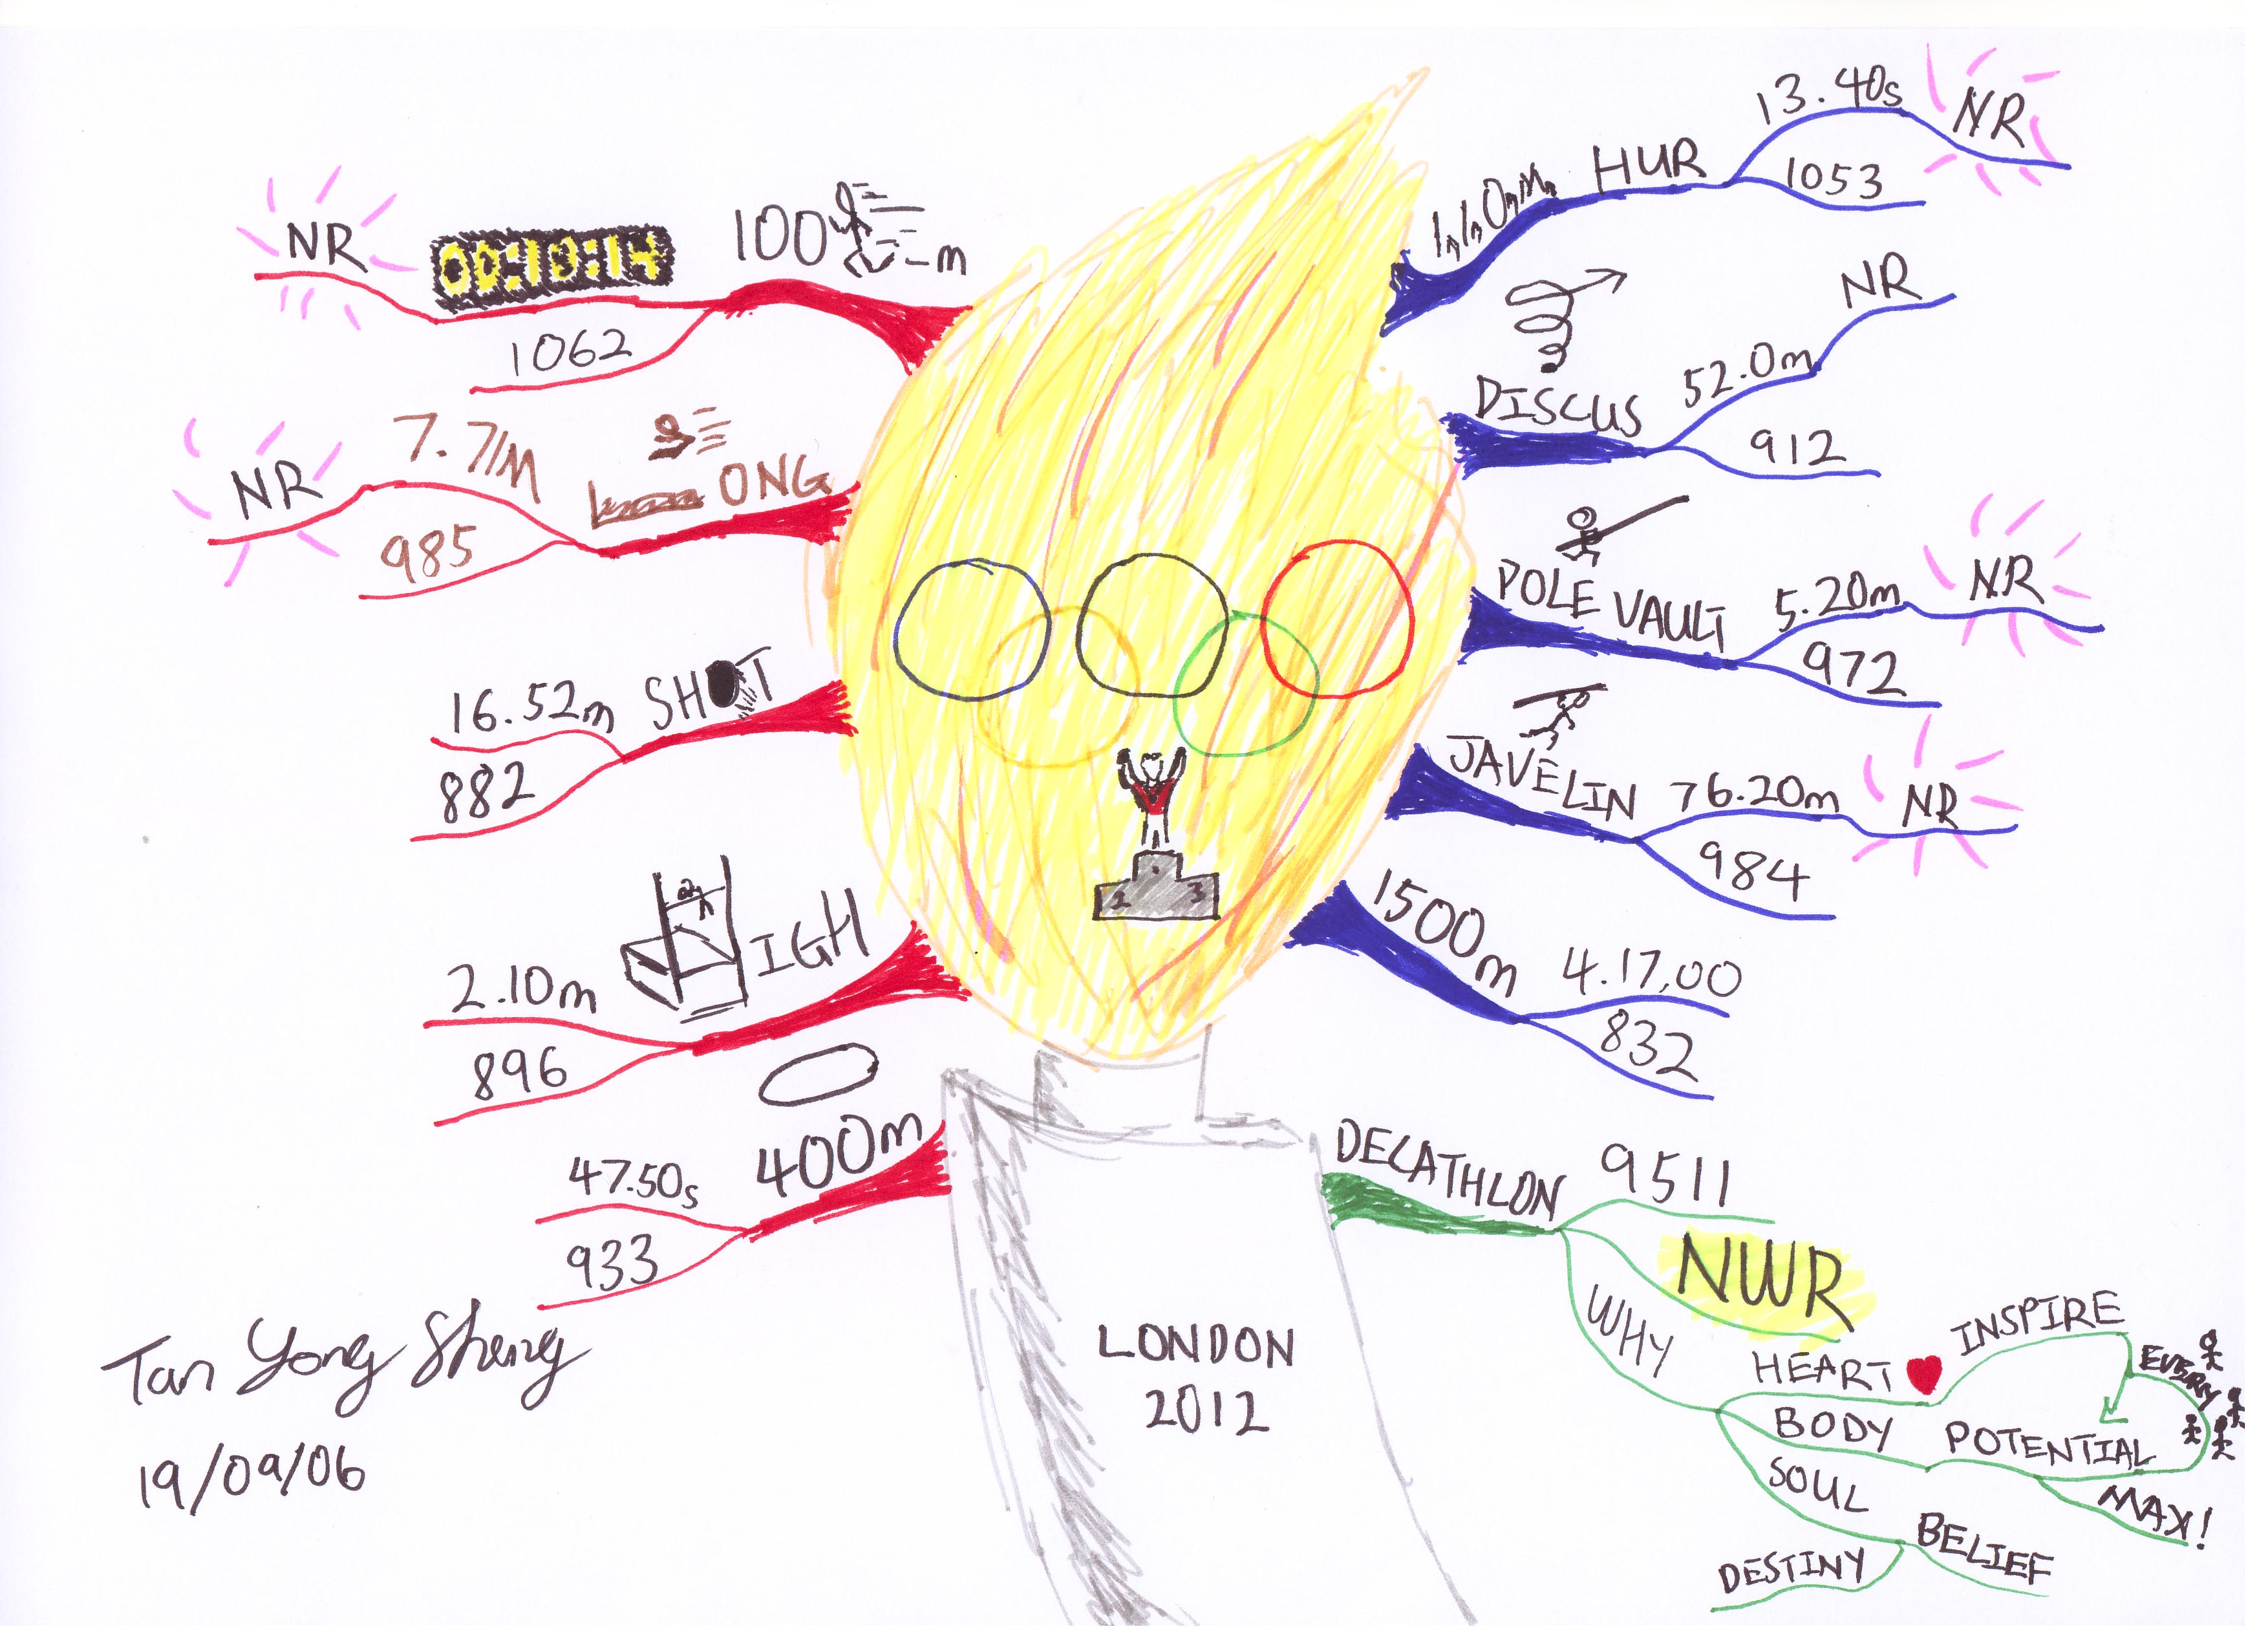 NR 00:10:14 100 m
1062
NR 7.71M LONG
985
16.52m SHOT
882
2.10m HIGH
896
47.50s 400m
933
Tan Yong Sheng
19/09/06
110m HUR 13.40s NR
1053
DISCUS 52.0m NR
912
POLE VAULT 5.20m NR
972
JAVELIN 76.20m NR
984
1500m 4.17,00
832
DECATHLON 9511
NWR
WHY
HEART INSPIRE EVERY
BODY POTENTIAL
MAX!
SOUL BELIEF
DESTINY
LONDON
2012